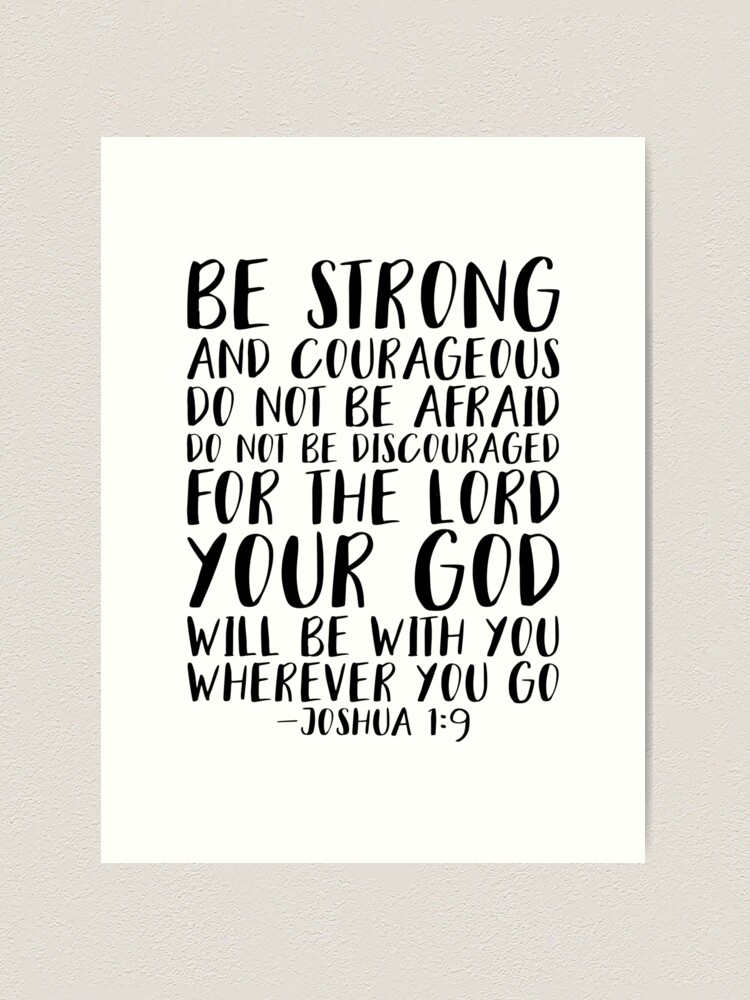 BE STRONG
AND COURAGEOUS
DO NOT BE AFRAID
DO NOT BE DISCOURAGED
FOR THE LORD
YOUR GOD
WILL BE WITH YOU
WHEREVER YOU GO
–JOSHUA 1:9